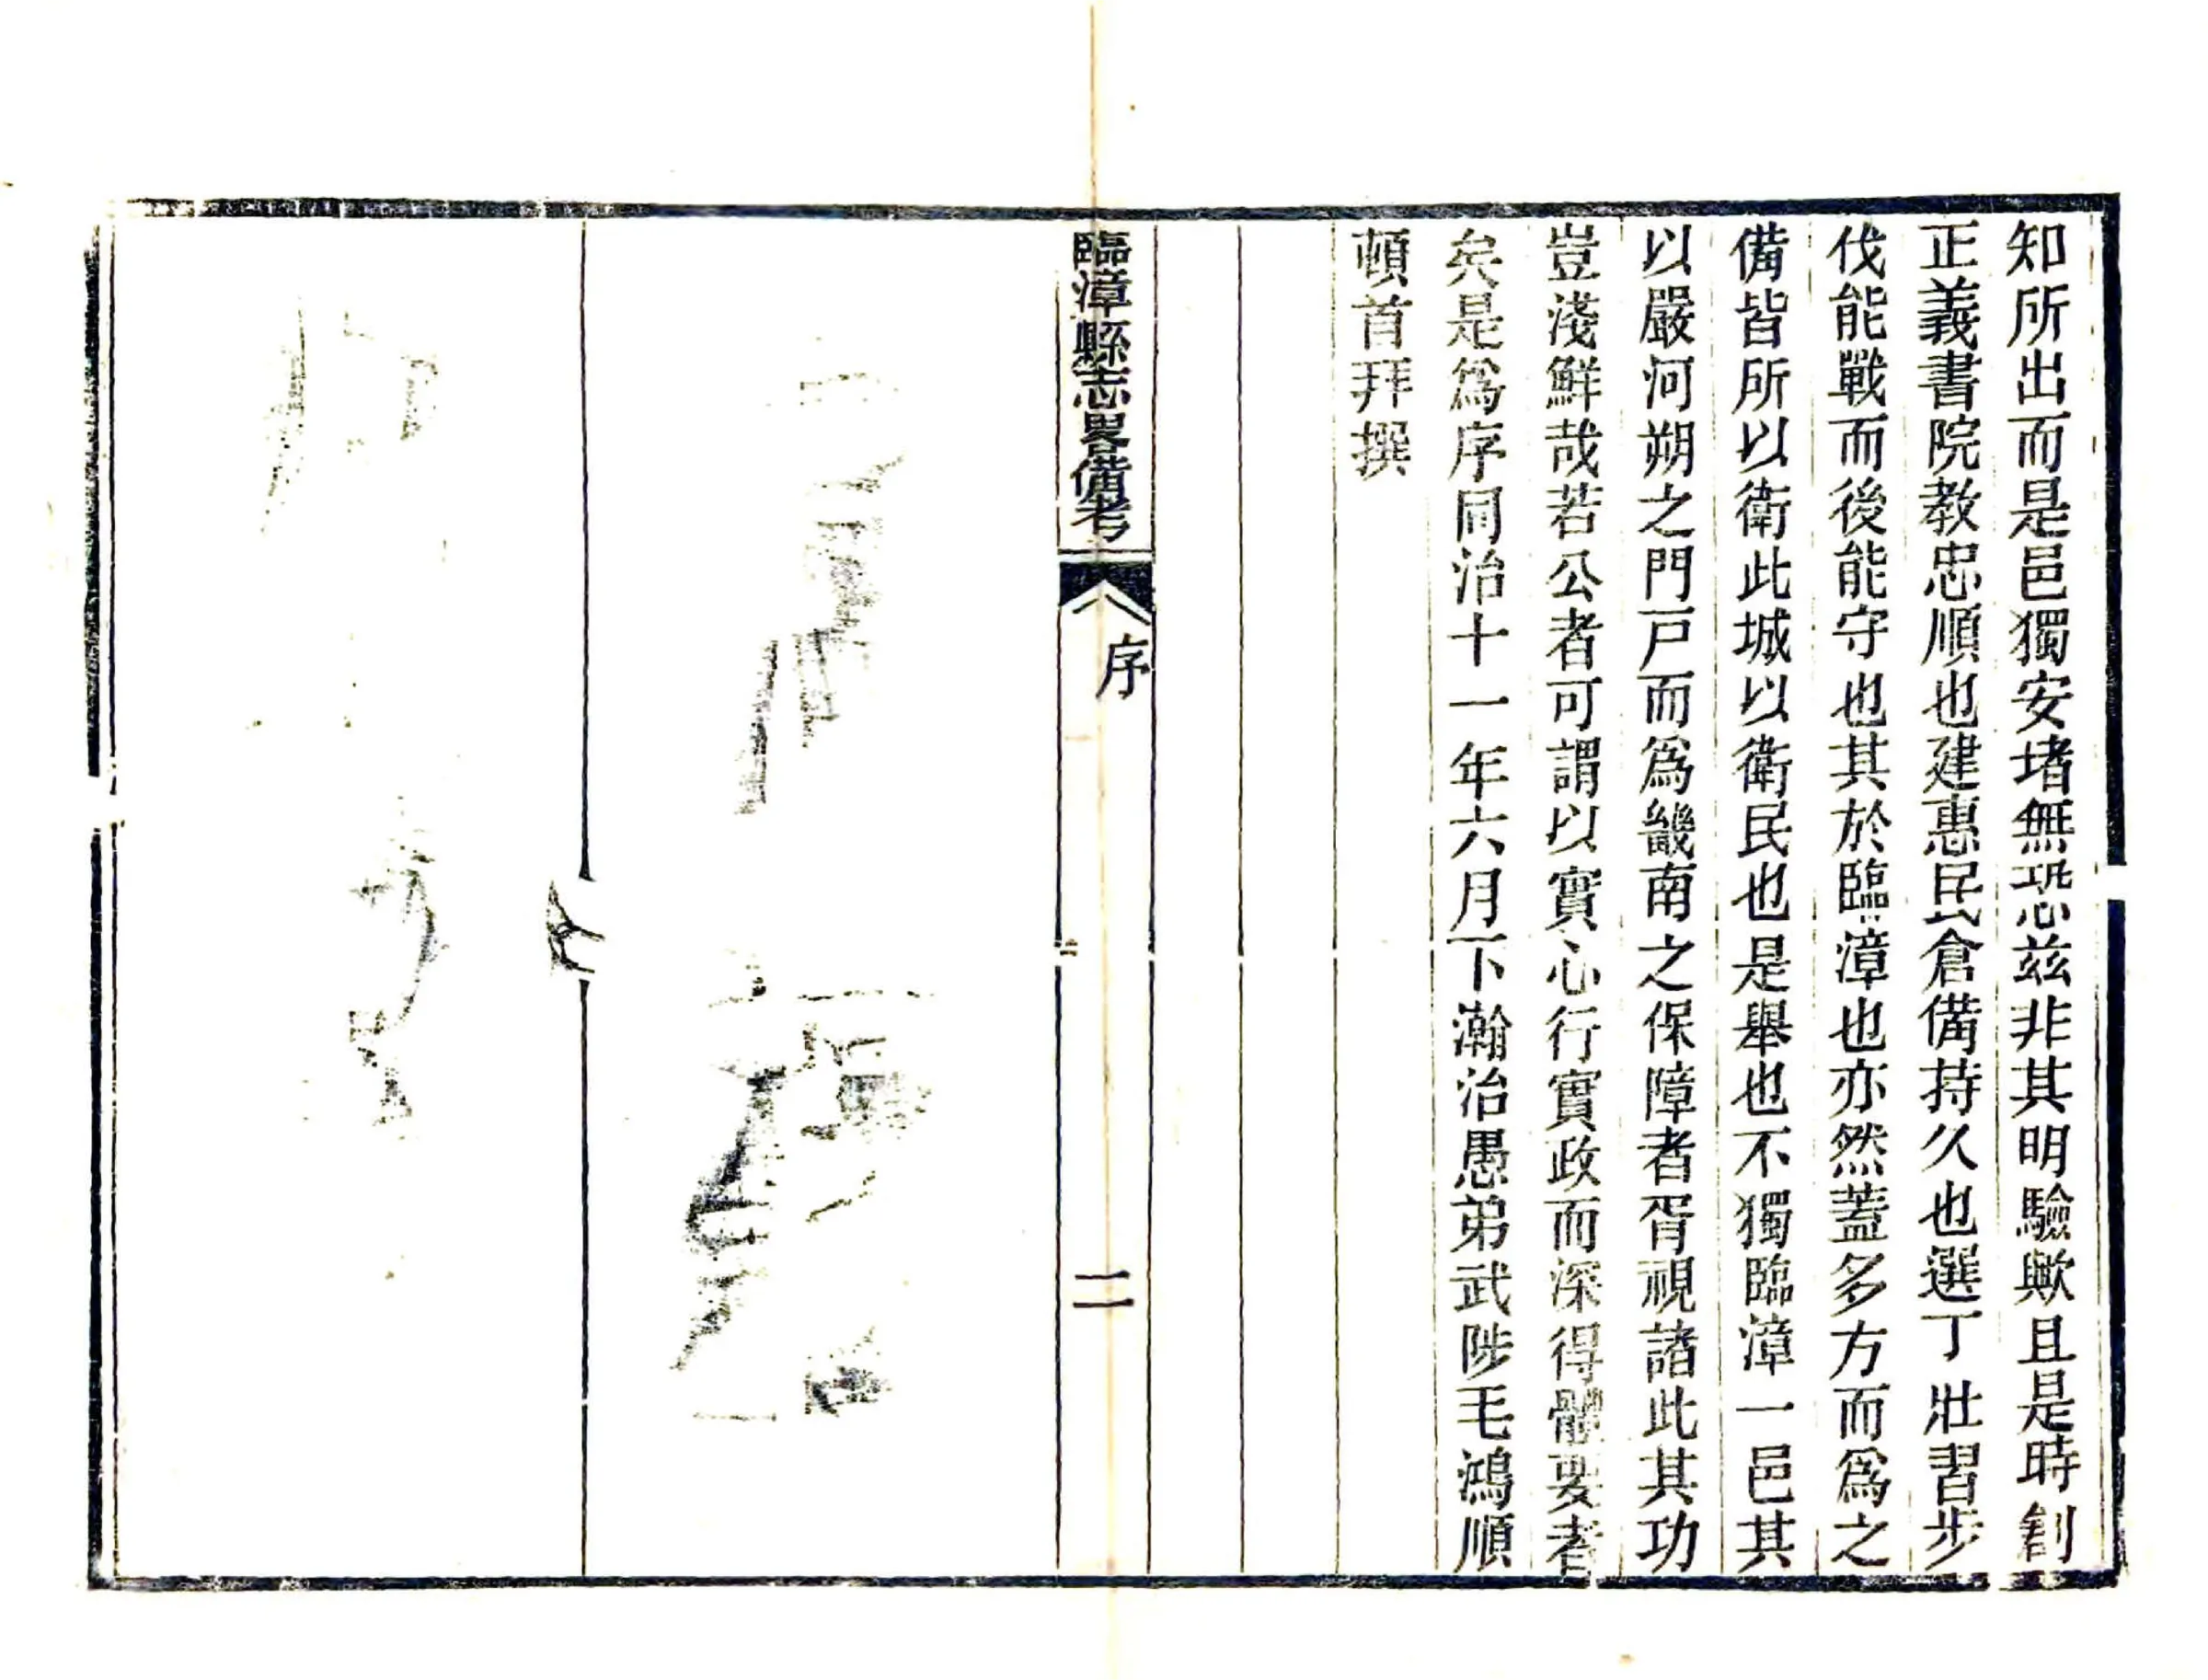 知所出而是邑獨安堵無恐茲非其明驗歟且是時創
正義書院教忠順也建惠民倉備持久也選丁壯習步
伐能戰而後能守也其於臨漳也亦然蓋多方而爲之
備皆所以衛此城以衛民也是舉也不獨臨漳一邑其
以嚴河朔之門戸而爲畿南之保障者胥視諸此其功
豈淺鮮哉若公者可謂以實心行實政而深得體要者
矣是爲序同治十一年六月下瀚治愚弟武陟毛鴻順
頓首拜撰
臨漳縣志畧備考
序
二